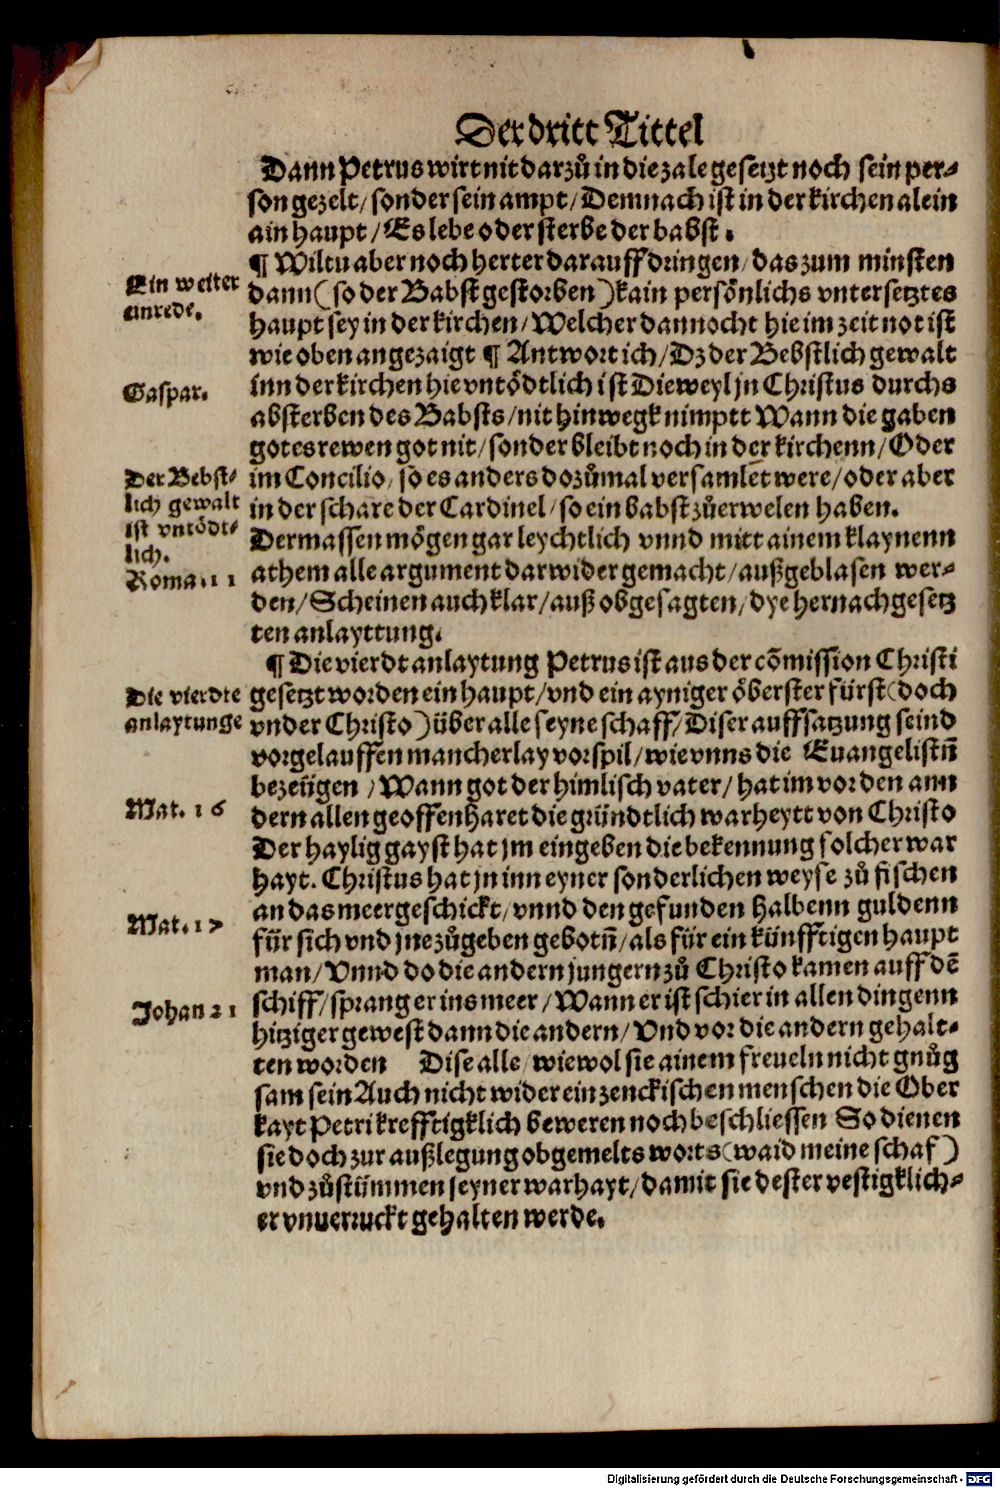 Der dritt Tittel
Dann Petrus wirt nit darzů in die zale gesetzt noch sein per-
son gezelt/ sonder sein ampt/ Demnach ist in der kirchen alein
ain haupt/ Es lebe oder sterbe der babst.
¶ Wiltu aber noch herter darauff dringen/ das zum minsten
Ein weiter
einrede.
dann (so der Babst gestorben) kain persönlichs vntersetztes
haupt sey in der kirchen/ Welcher dannocht hie im zeit not ist
wie oben angezaigt ¶ Antwort ich/ Dz der Bebstlich gewalt
Gaspar.
inn der kirchen hie vntödtlich ist Dieweyl jn Christus durchs
absterben des Babsts/ nit hinwegk nimptt Wann die gaben
gotes rewen got nit/ sonder bleibt noch in der kirchenn/ Oder
Der Bebst-
lich gewalt
ist vntödt-
lich.
Roma. 11
im Concilio/ so es anders dozůmal versamlet were/ oder aber
in der schare der Cardinel/ so ein babst zůerwelen haben.
Dermassen mögen gar leychtlich vnnd mitt ainem klaynenn
athem alle argument darwider gemacht/ außgeblasen wer-
den/ Scheinen auch klar/ auß obgesagten/ dye hernach gesetz
ten anlayttung.
¶ Die vierdt anlaytung Petrus ist aus der cõmission Christi
Die vierdte
anlaytunge
gesetzt worden ein haupt/ vnd ein ayniger öberster fürst (doch
vnder Christo) über alle seyne schaff/ Diser auffsatzung seind
vorgelauffen mancherlay vorspil/ wie vnns die Euangelistñ
bezeügen/ Wann got der himlisch vater/ hat im vor den ann
Mat. 16
dern allen geoffenbaret die gründtlich warheytt von Christo
Der haylig gayst hat jm eingeben die bekennung solcher war
hayt. Christus hat jn inn eyner sonderlichen weyse zů fischen
an das meer geschickt/ vnnd den gefunden halbenn guldenn
Mat. 17
für sich vnd jne zůgeben gebotñ/ als für ein künfftigen haupt
man/ Vnnd do die andern jungern zů Christo kamen auff dẽ
Johan 21
schiff/ sprang er ins meer/ Wann er ist schier in allen dingenn
hitziger gewest dann die andern/ Vnd vor die andern gehalt-
ten worden Dise alle/ wiewol sie ainem freueln nicht gnůg
sam sein Auch nicht wider ein zenckischen menschen die Ober
kayt Petri krefftigklich beweren noch beschliessen So dienen
sie doch zur außlegung obgemelts worts (waid meine schaf)
vnd zůstimmen seyner warhayt/ damit sie dester vestigklich-
er vnuerruckt gehalten werde.
Digitalisierung gefördert durch die Deutsche Forschungsgemeinschaft - DFG